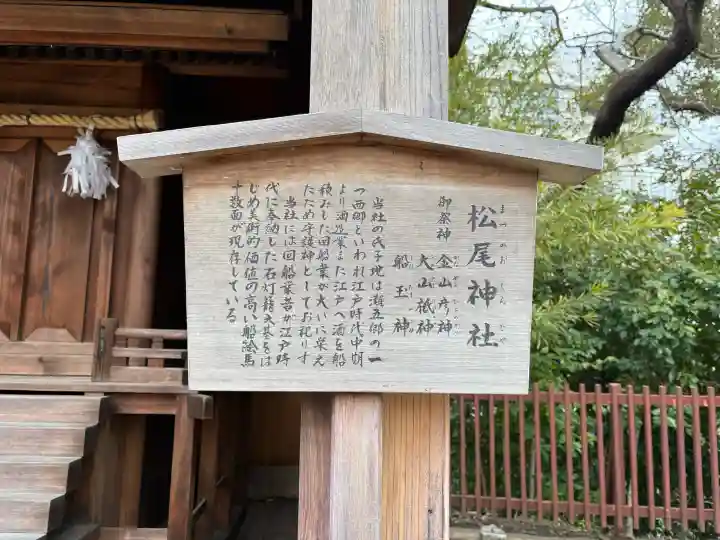 松尾神社
まつのおじんじゃ
御祭神 金山彦神
大山祇神
船玉神
当社の氏子地は灘五郷の一
つ西郷といわれ江戸時代中期
より酒造業また江戸へ酒を船
積みした回船業が大いに栄え
たため守護神としてお祀りす
当社には回船業者が江戸時
代に奉納した石灯籠六基をは
じめ美術的価値の高い船絵馬
十数面が現存している